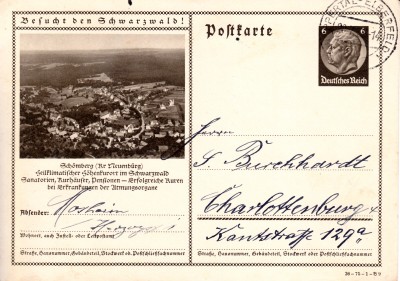 Besucht den Schwarzwald!
Postkarte
6 6
Deutsches Reich
Schömberg (Kr Neuenbürg)
Heilklimatischer Höhenkurort im Schwarzwald
Sanatorien, Kurhäuser, Pensionen – Erfolgreiche Kuren
bei Erkrankungen der Atmungsorgane
Absender: Mosheim
Wohnort, auch Zustell- oder Leitpostamt
Straße, Hausnummer, Gebäudeteil, Stockwerk od. Postschließfachnummer
Herrn
S. Burchhardt
Charlottenburg
Kantstraße 129a
Straße, Hausnummer, Gebäudeteil, Stockwerk oder Postschließfachnummer